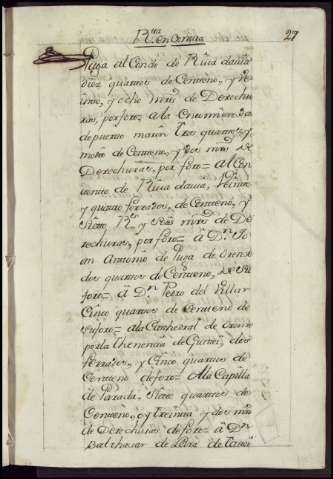 R.ta en Carvia 27
Paga al Conde de Riva davia
diez quartos de Zenteno, y ve
inte, y ocho mrs de Derechu
ras, por foro= a la Encomienda
de puerto marin tres quartos, y
medio de Centeno, y dos mrs de
Derechuras, por foro= al Con
vento de Riva davia, Veinte
y quatro ferrados, de Centeno, y
siete Rs, y seis mrs de De
rechuras, por foro= â Dn Jo
an Antonio de Puga de Orense
dos quartos de Centeno, de su
foro= â Dn Pedro del Villar
Cinco quartos de Centeno de
su foro= ala Cathedral de Orense
por la thenencia de dos
ferrados, y Cinco quartos de
Centeno de foro= Ala Capilla
de Parada, siete quartos de
Centeno, y treinta y dos mrs
de Derechuras de foro= â Dn
Balthasar de de